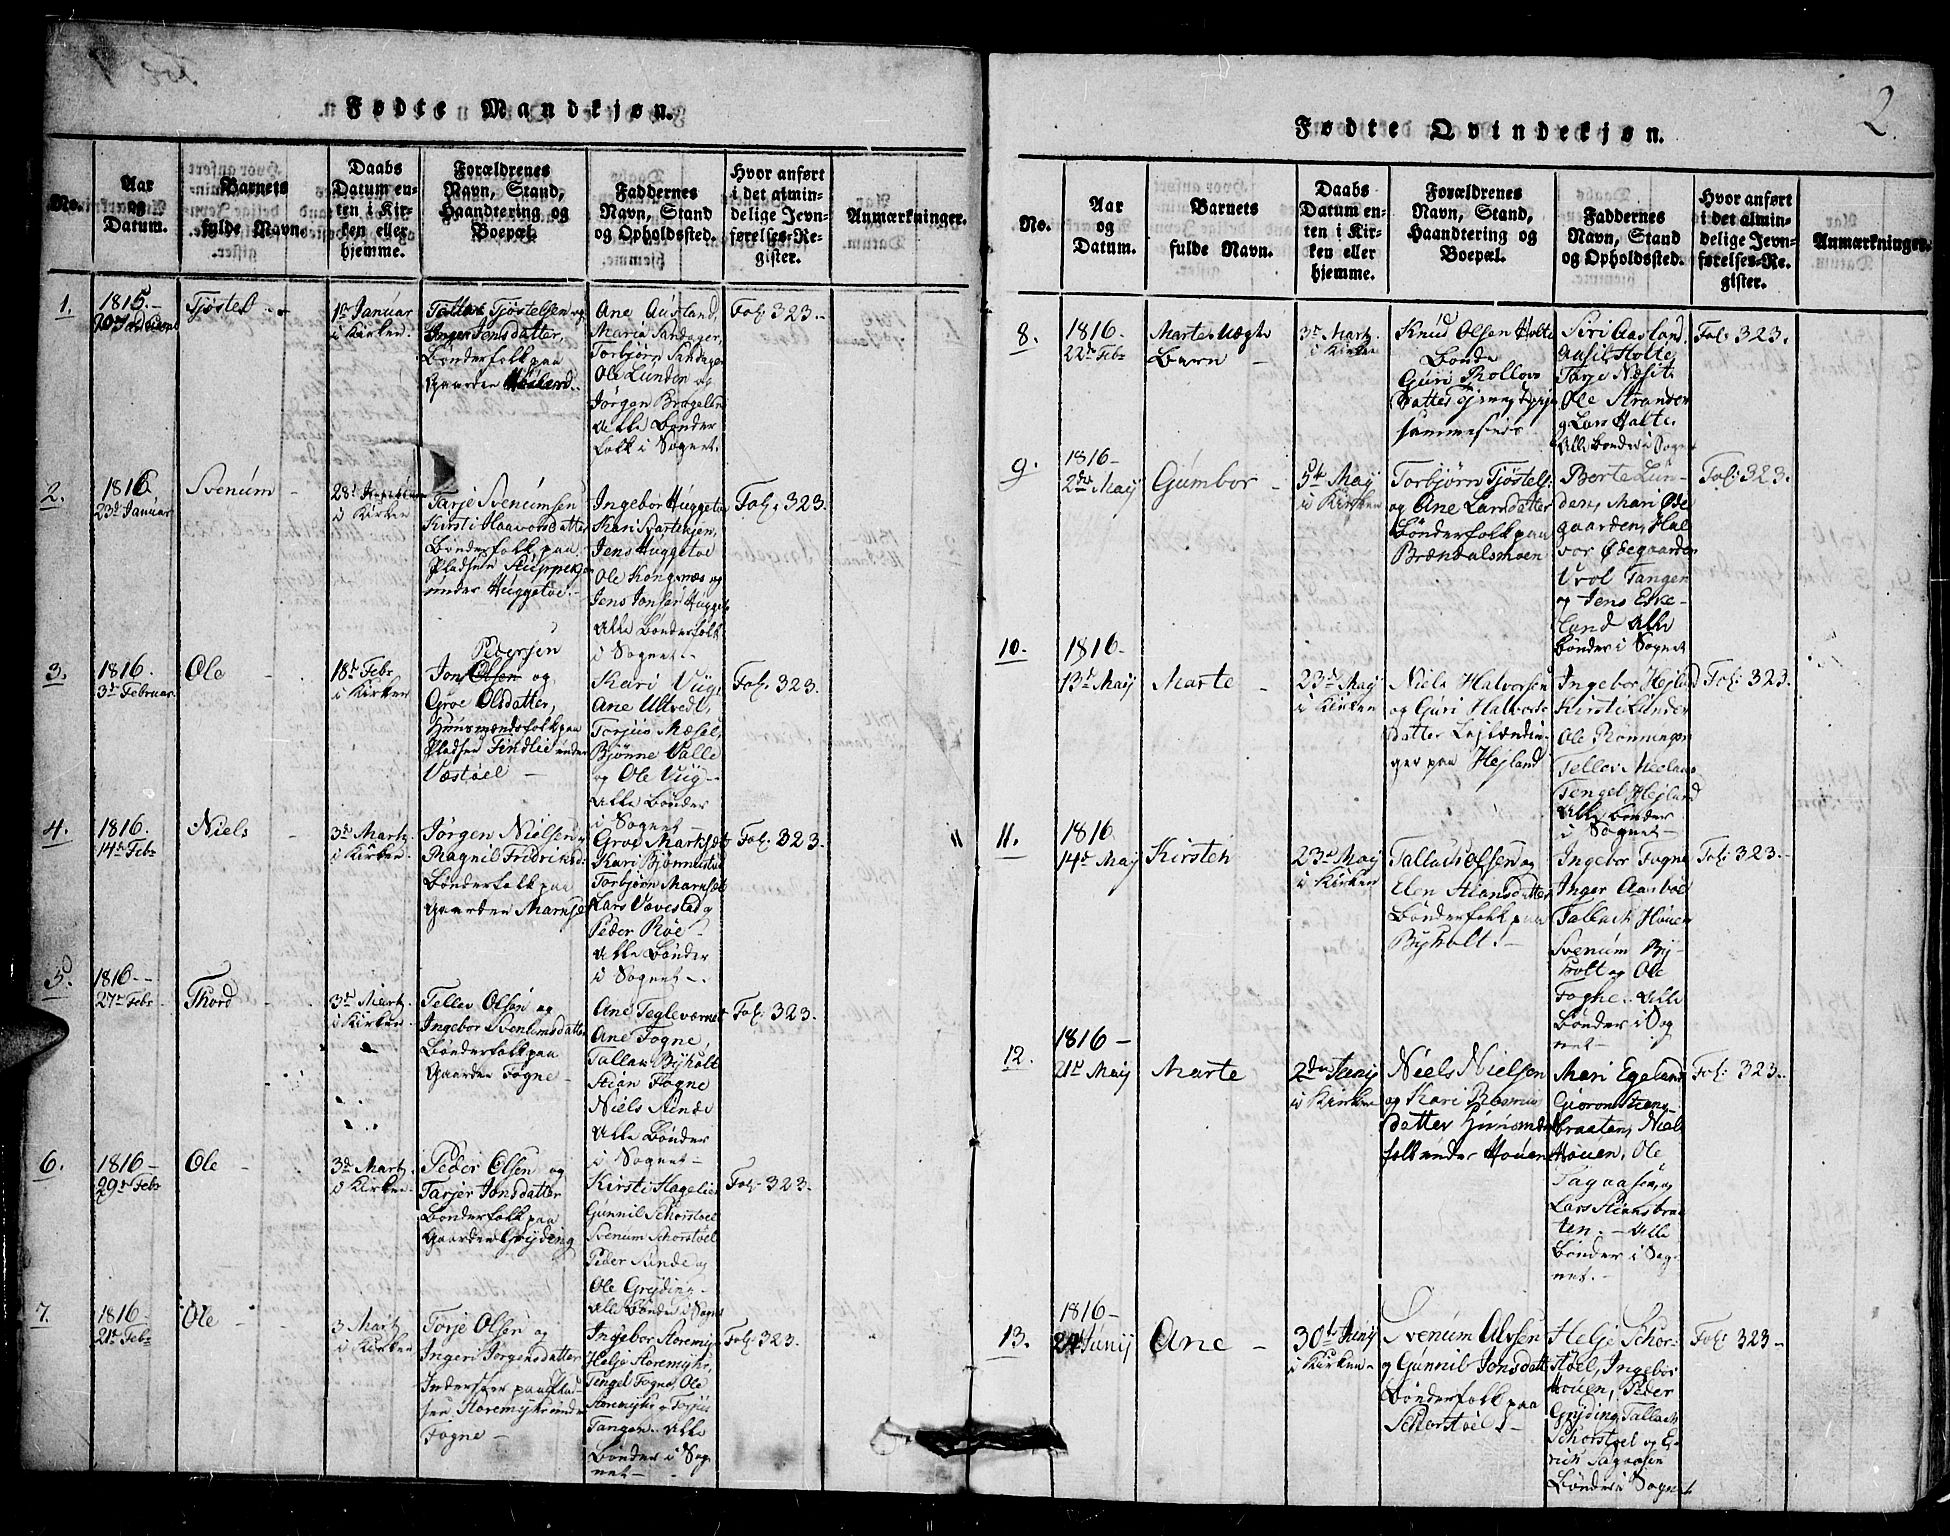 Fødte Mandkjøn.
No.
Aar
og
Datum.
Barnets
fulde Navn.
Daabs
Datum en-
ten i Kir-
ken eller
hjemme.
Forældrenes
Navn, Stand,
Haandtering og
Boepæl.
Faddernes
Navn, Stand
og Opholdssted.
Hvor anført
i det almin-
delige Jevn-
førelses-Re-
gister.
Anmærkninger.
1.
1815.-
Tjøstel
1te Januar
i Kirken
Tjøstelsen og
Inger Jensdatter,
Bønderfolk paa
Gaarden
Ane Ausland,
Maria Sandager,
Torbjørn Sandager
Ole Lunden og
Jørgen Brægelen
Alle Bønder
folk i Sognet.
Fol: 323.
2.
1816
23d Januar
Svenum
28d
i Kirken
Tarje Svenumsen
Kirsti Haavorsdatter
Bønderfolk paa
Pladsen
under Huggetøe.
Ingebor Huggetøe
Kari Svartchjen,
Jens Huggetøe
Ole Kongsnæs og
Jens Jonsen Hugget
Alle Bønderfolk
i Sognet.
Fol: 323.
3.
1816.
3d Februar.
Ole
18d Febr
i Kirken
Pedersen
Jon Olsen og
Groe Olsdatter,
Huusmandsfolk paa
Pladsen Findlie under
Væstøel
Kari Vüg,
Ane Ultvedt,
Torjuis Mæsel,
Bjønne Valle
og Ole Vüg
Alle Bønder
i Sognet
Fol: 323.
4.
1816.
14d Febr
Niels
3d Marty
i Kirken
Jørgen Nielsen og
Ragnil Fridriksd
Bønderfolk paa
Gaarden Marnse
Groe
Kari
Torbjørn
Lars Vævestad og
Peder Røe
Alle Bønder
i Sognet.
Fol: 323.
5.
1816-
27d Febr
Thord
3d Marty
i Kirken
Tellev Olsen og
Ingebor Svenumsdatter
Bønderfolk paa
Gaarden Fogne
Ane
Ane Fogne,
Tallak Byholt
Stian Fogne
Niels Sunde
Alle Bønder
i Sognet
Fol: 323.
6.
1816-
29d Febr
Ole
3d Marty
i Kirken
Peder Olsen og
Tarjer Jonsdatter
Bønderfolk paa
Gaarden Gryding
Kirsti Hagelie
Gunnil Schorstøel
Svenum Schorstøel
Peder Sunde og
Ole Gryding
Alle Bønder i Sogn
Fol: 323.
7.
1816.
21d Febr
Ole
3 Marty
i Kirken
Torje Olsen og
Ingeri Jørgensdatter
Inderster paa Plad-
sen Storemyhr under
Fogne
Ingebor Storemyhr
Helje Storemyhr,
Tengel Fogne, Ole
Storemyhr og Torjus
Tangen. Alle
Bønder i Sog-
net
Fol: 323.
Fødte Qvindekjøn.
2
No.
Aar
og
Datum.
Barnets
fulde Navn.
Daabs
Datum en-
ten i Kir-
ken eller
hjemme.
Forældrenes
Navn, Stand,
Haandtering og
Boepæl.
Faddernes
Navn, Stand
og Opholdssted.
Hvor anført
i det almin-
delige Jevn-
førelses-Re-
gister.
Anmærkninger.
8.
1816.
22d Febr
Marte Uægte
Barn
3d Marty
i Kirken
Knud Olsen Holte
Bonde
Guri Rollovs
Datter
sammesteds
Siri Aasland,
Ansil Holte,
Tarje Næsit
Ole Stranden
og Lars Holte.
Alle bønder i Sogn
Fol: 323.
9.
1816-
2den May
Gumbor
5te May
i Kirken
Torbjørn Tjøstels
og Ane Larsdatter
Bønderfolk paa
Brændalsmoen
Berte Lun-
den, Mari Øde
gaarden, Hal
vor Ødegaarden
Urol Tangen
og Jens Eske-
land Alle
bønder i Sognet
Fol: 323.
10.
1816.
13d May
Marte
23d May
i Kirken
Niels Halvorsen
og Guri Halvors
datter Lejlændin-
ger paa Hejland
Ingebor Hejland
Kirsti Lunden
Ole Rønningen
Tellev
Tengel Hejland
Alle bønder
i Sognet
Fol: 323.
11.
1816.
14d May
Kirsten
23d May
i Kirken
Tallach Olsen og
Elen Stiansdatter
Bønderfolk paa
Byholt.
Ingebor Fogne
Inger Aasbøe
Tallach Høuen
Svenum By-
holt og Ole
Fogne. Alle
Bønder i Sog
net
Fol: 323.
12.
1816-
21d May
Marte
2den Juny
i Kirken
Niels Nielsen
og Kari Rasmus
datter Huusmands
folk under Høuen
Mari Egeland
Gioron Stiens-
braaten, Niels
Høuen, Ole
Tagaasen og
Lars Stiensbraa
ten. Alle
Bønder i Sog-
net.
Fol: 323.
13.
1816-
Juny
Ane
30d Juny
i Kirken
Svenum Alvsen
og Gunnil Jonsdatt
Bønderfolk paa
Schorstøel
Helje Schor-
støel, Ingebor
Høuen, Peder
Gryding, Tallach
Schorstøel og E-
rich Tagaasen
Bønder i Sognet
Fol: 323